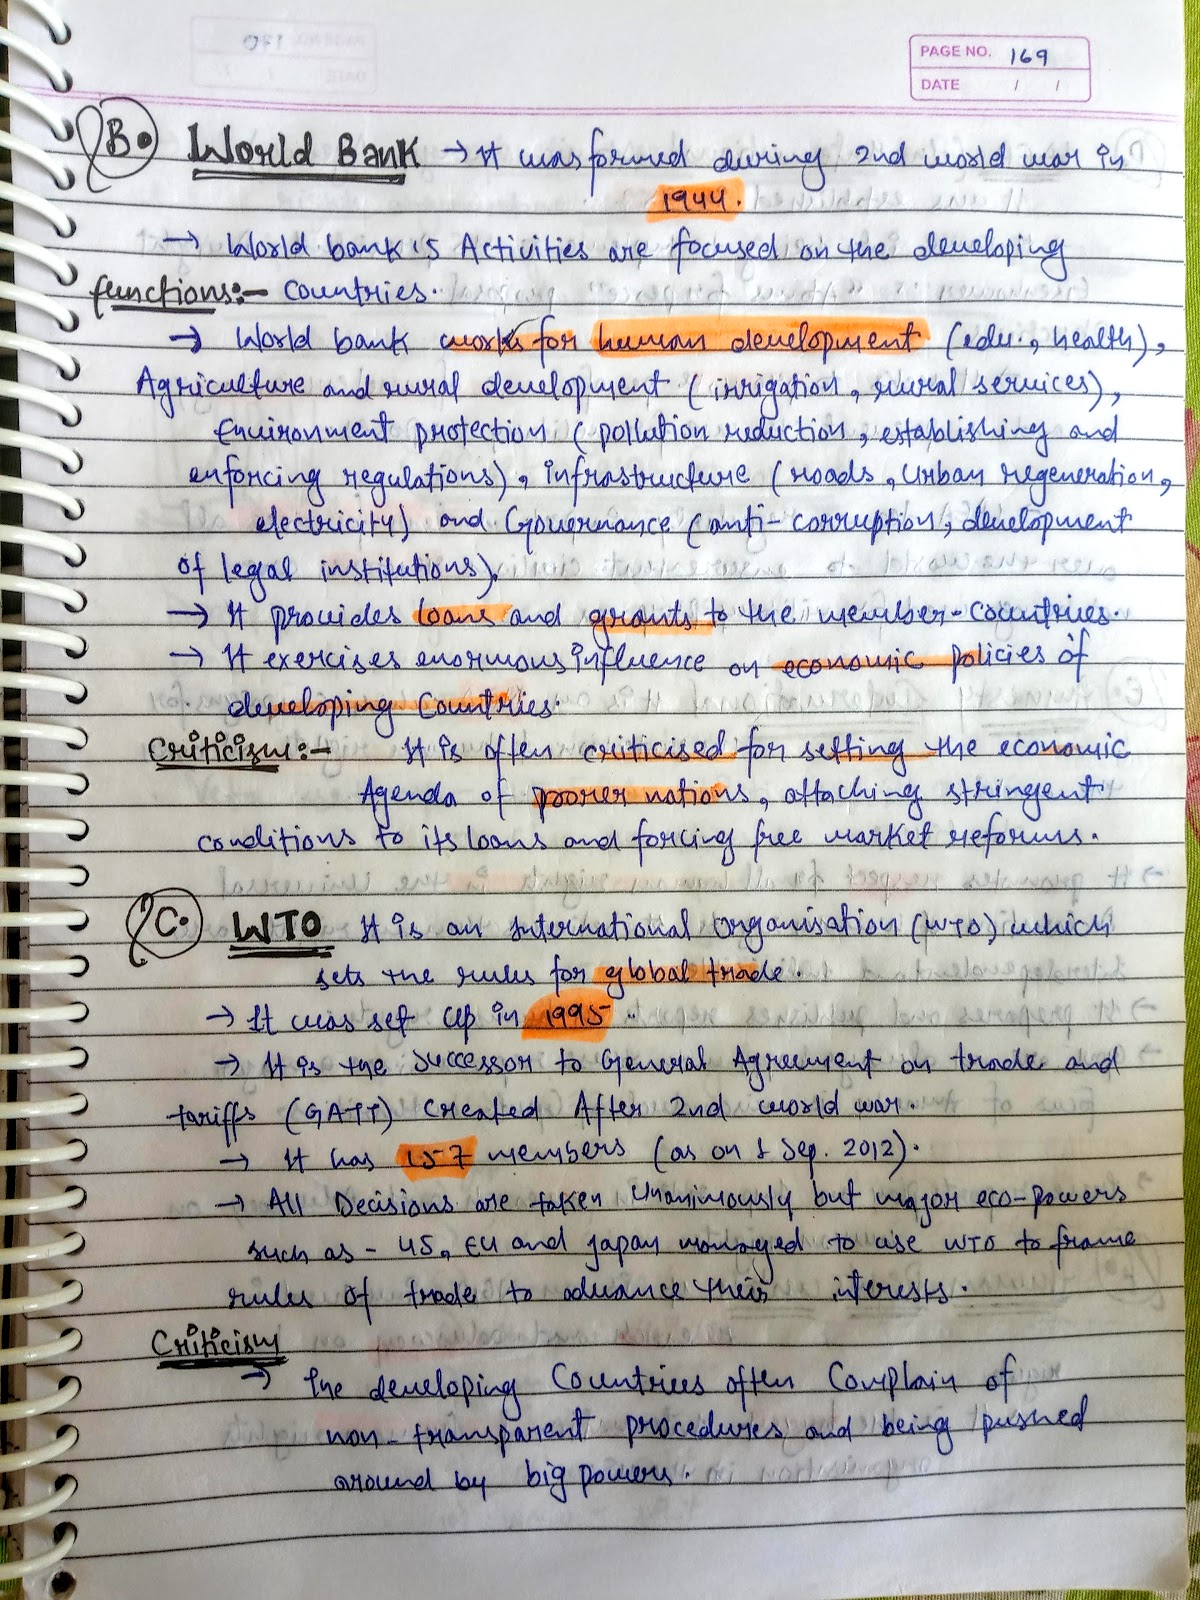 PAGE NO. 169
DATE / /
B. World Bank → It was formed during 2nd world war in
1944.
→ World bank's Activities are focused on the developing
functions:- Countries.
→ World bank works for human development (edu., health),
Agriculture and rural development (irrigation, rural services),
Environment protection (pollution reduction, establishing and
enforcing regulations), infrastructure (roads, Urban regeneration,
electricity) and Governance (anti-corruption, development
of legal institutions).
→ It provides loans and grants to the member-Countries.
→ It exercises enormous influence on economic policies of
developing Countries.
Criticism:- It is often criticised for setting the economic
Agenda of poorer nations, attaching stringent
conditions to its loans and forcing free market reforms.
C. WTO It is an International Organisation (WTO) which
sets the rules for global trade.
→ It was set up in 1995.
→ It is the Successor to General Agreement on trade and
tariffs (GATT) Created After 2nd world war.
→ It has 157 members (as on 1 Sep. 2012).
→ All Decisions are taken Unanimously but major eco-powers
such as - US, EU and Japan managed to use WTO to frame
rules of trade to advance their interests.
Criticism
→ The developing Countries often Complain of
non-transparent procedures and being pushed
around by big powers.